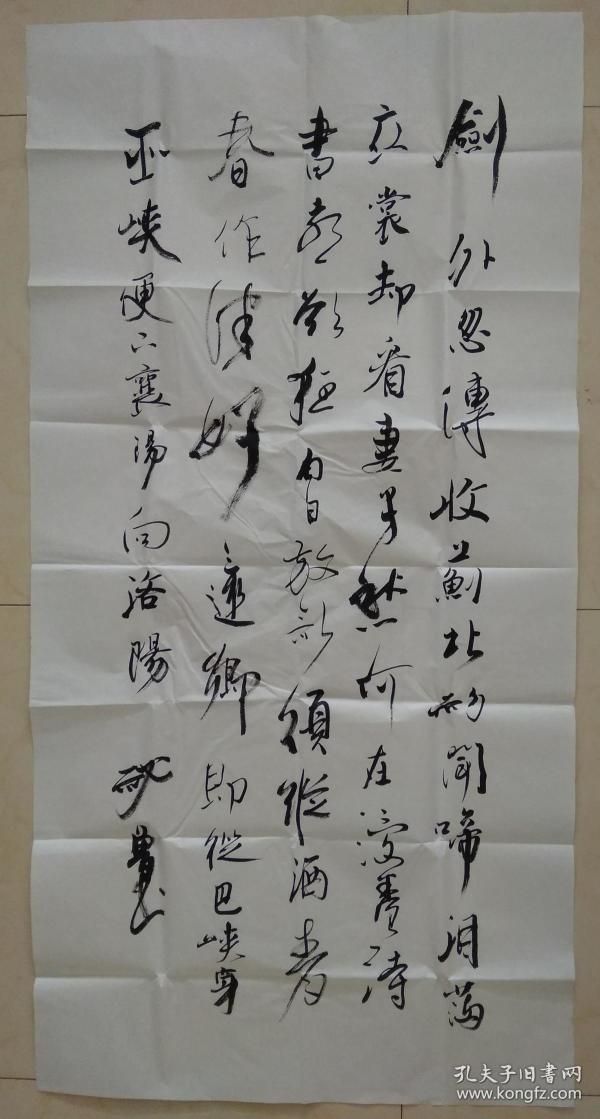 劍外忽傳收薊北初聞啼泪滿
衣裳却看妻子愁何在漫卷詩
書喜欲狂白日放歌須縱酒青
春作伴好還鄉即從巴峽穿
巫峽便下襄陽向洛陽
孔夫子旧书网
www.kongfz.com